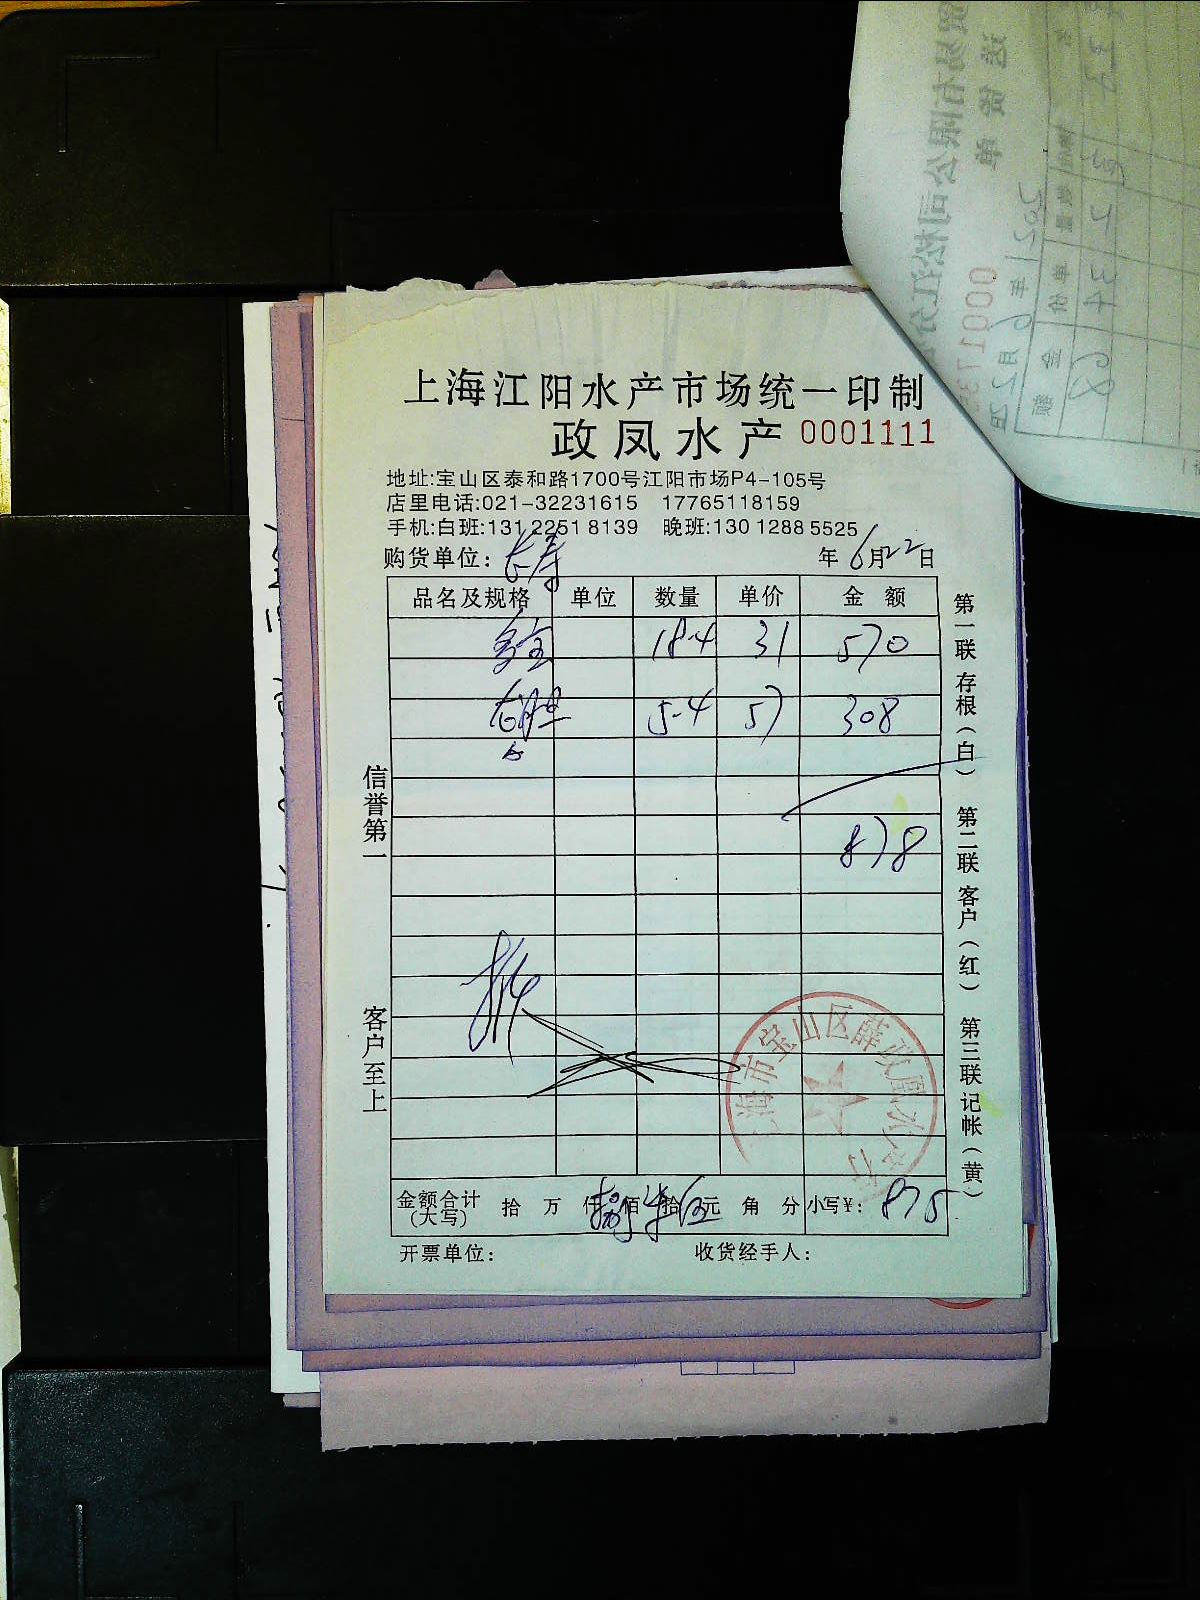 上海江阳水产市场统一印制
政凤水产 0001111
地址:宝山区泰和路1700号江阳市场P4-105号
店里电话:021-32231615 17765118159
手机:白班:131 2251 8139 晚班:130 1288 5525
购货单位: 长寿 年 6月22日
品名及规格 单位 数量 单价 金额
18.4 31 570
5.4 57 308
878
信誉第一
客户至上
第一联存根(白) 第二联客户(红) 第三联记帐(黄)
上海市宝山区薛政凤水产行
金额合计(大写) 拾 万 仟 佰 拾 元 角 分 小写¥: 875
开票单位: 收货经手人: